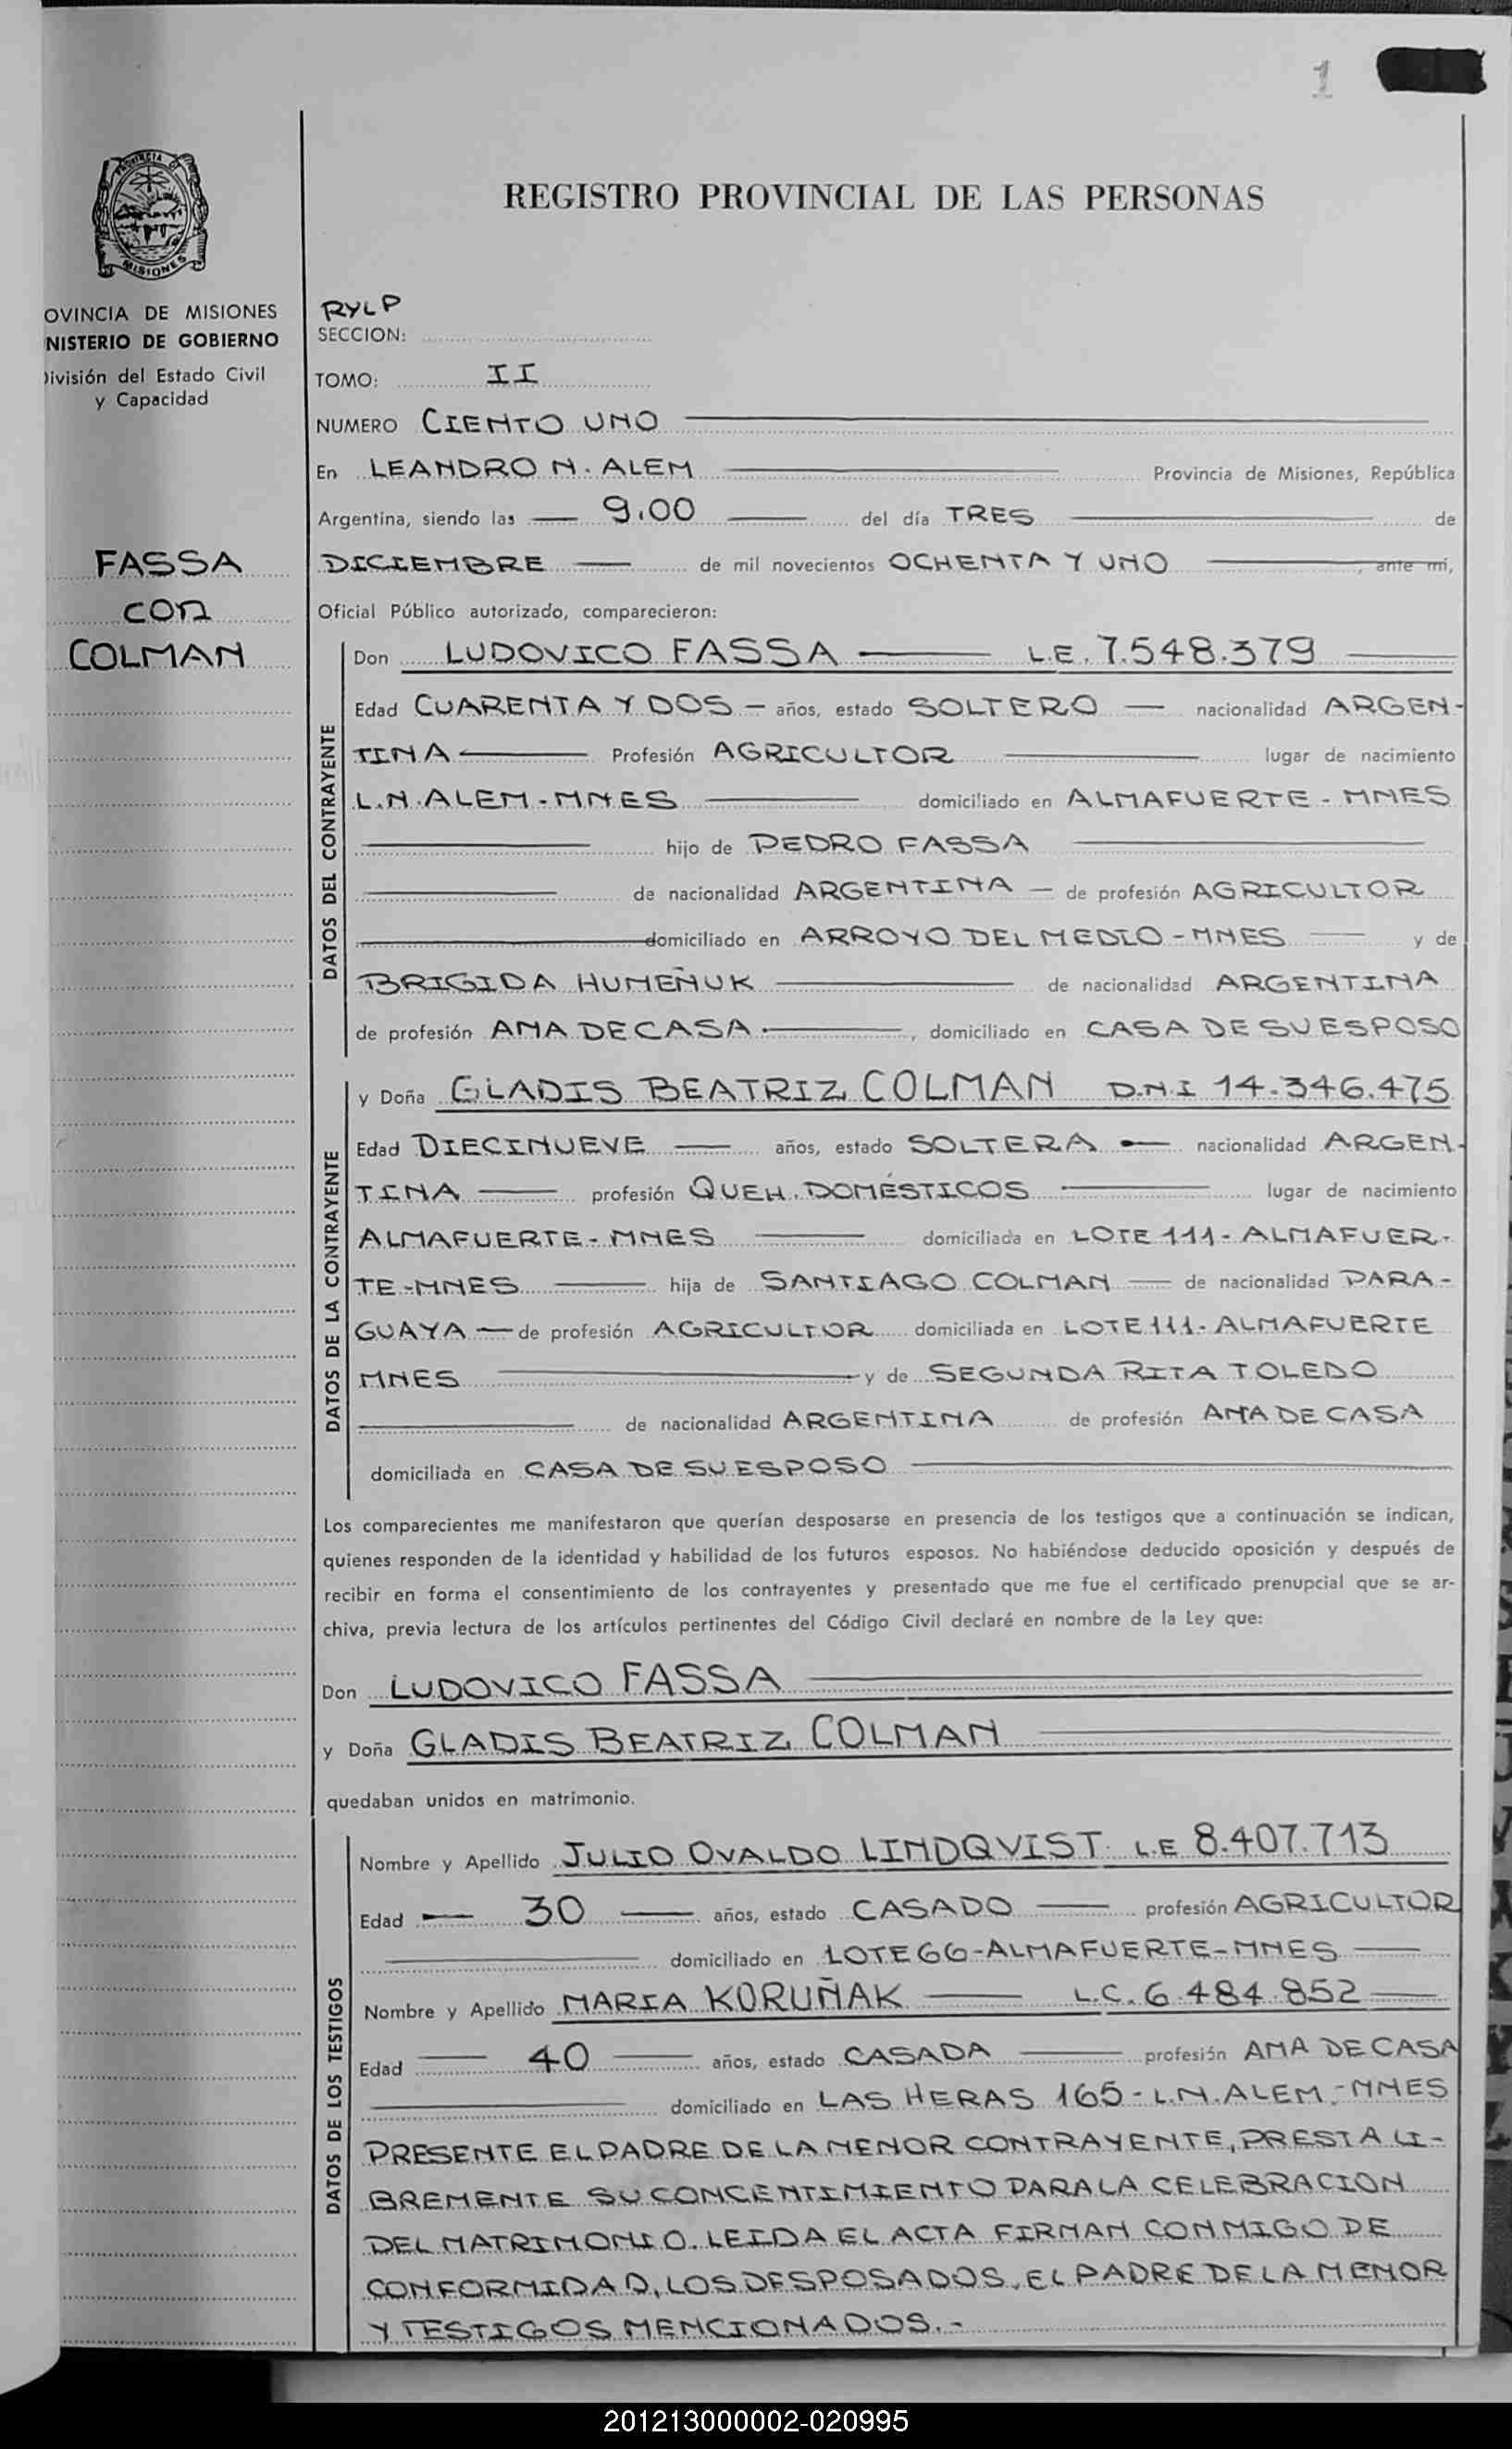 1
REGISTRO PROVINCIAL DE LAS PERSONAS
PROVINCIA D
MISIONES
OVINCIA DE MISIONES
NISTERIO DE GOBIERNO
División del Estado Civil
y Capacidad
FASSA
CON
COLMAN
RYLP
SECCION:
TOMO: II
NUMERO CIENTO UNO
En LEANDRO N. ALEM Provincia de Misiones, República
Argentina, siendo las 9.00 del día TRES de
DICIEMBRE de mil novecientos OCHENTA Y UNO, ante mí,
Oficial Público autorizado, comparecieron:
DATOS DEL CONTRAYENTE
Don LUDOVICO FASSA L.E. 7.548.379
Edad CUARENTA Y DOS - años, estado SOLTERO nacionalidad ARGEN-
TINA Profesión AGRICULTOR lugar de nacimiento
L.N.ALEM-MNES domiciliado en ALMAFUERTE - MNES
hijo de PEDRO FASSA
de nacionalidad ARGENTINA - de profesión AGRICULTOR
domiciliado en ARROYO DEL MEDIO - MNES y de
BRIGIDA HUMEÑUK de nacionalidad ARGENTINA
de profesión AMA DE CASA, domiciliado en CASA DE SU ESPOSO
DATOS DE LA CONTRAYENTE
y Doña GLADIS BEATRIZ COLMAN D.N.I 14.346.475
Edad DIECINUEVE años, estado SOLTERA nacionalidad ARGEN-
TINA profesión QUEH. DOMÉSTICOS lugar de nacimiento
ALMAFUERTE - MNES domiciliada en LOTE 111 - ALMAFUER-
TE-MNES hija de SANTIAGO COLMAN de nacionalidad PARA-
GUAYA de profesión AGRICULTOR domiciliada en LOTE 111- ALMAFUERTE
MNES y de SEGUNDA RITA TOLEDO
de nacionalidad ARGENTINA de profesión AMA DE CASA
domiciliada en CASA DE SU ESPOSO
Los comparecientes me manifestaron que querían desposarse en presencia de los testigos que a continuación se indican,
quienes responden de la identidad y habilidad de los futuros esposos. No habiéndose deducido oposición y después de
recibir en forma el consentimiento de los contrayentes y presentado que me fue el certificado prenupcial que se ar-
chiva, previa lectura de los artículos pertinentes del Código Civil declaré en nombre de la Ley que:
Don LUDOVICO FASSA
y Doña GLADIS BEATRIZ COLMAN
quedaban unidos en matrimonio.
DATOS DE LOS TESTIGOS
Nombre y Apellido JULIO OVALDO LINDQVIST L.E 8.407.713
Edad 30 años, estado CASADO profesión AGRICULTOR
domiciliado en LOTE 66-ALMAFUERTE-MNES
Nombre y Apellido MARIA KORUÑAK L.C. 6.484.852
Edad 40 años, estado CASADA profesión AMA DE CASA
domiciliado en LAS HERAS 165 - L.N.ALEM.-MNES
PRESENTE EL PADRE DE LA MENOR CONTRAYENTE, PRESTA LI-
BREMENTE SU CONCENTIMIENTO PARA LA CELEBRACION
DEL MATRIMONIO. LEIDA EL ACTA FIRMAN CONMIGO DE
CONFORMIDAD, LOS DESPOSADOS, EL PADRE DE LA MENOR
Y TESTIGOS MENCIONADOS.-
201213000002-020995